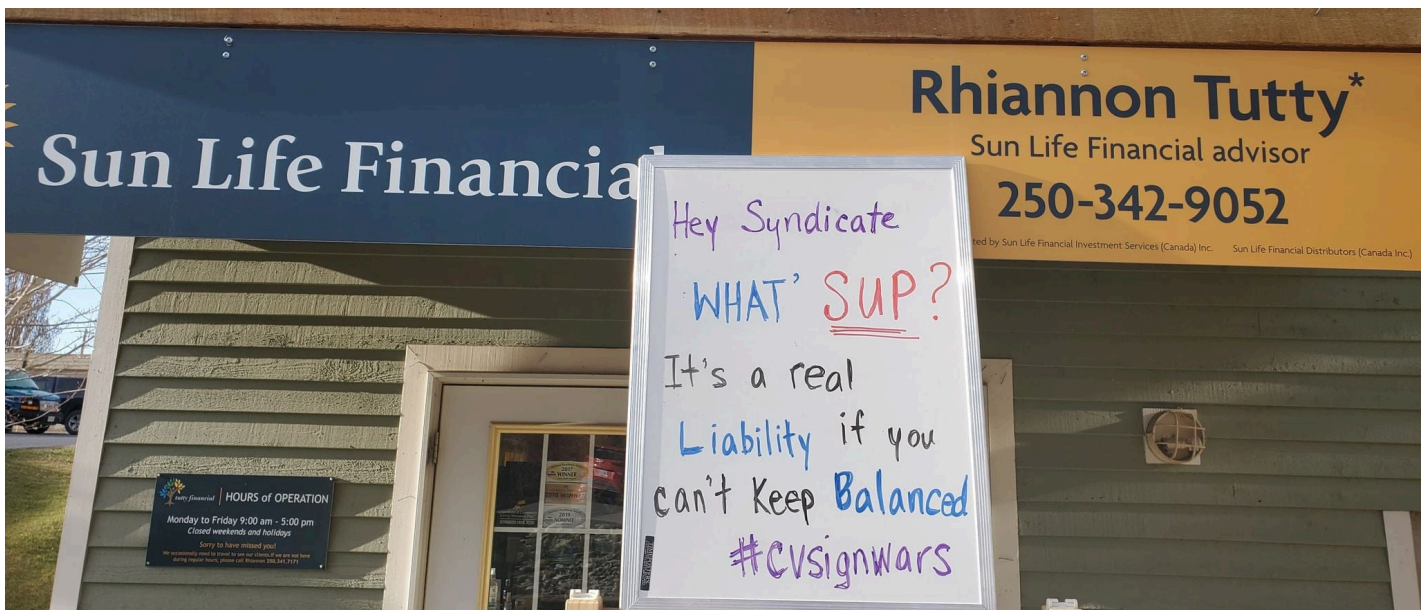 Sun Life Financial
Rhiannon Tutty*
Sun Life Financial advisor
250-342-9052
ted by Sun Life Financial Investment Services (Canada) Inc. Sun Life Financial Distributors (Canada Inc.)
Hey Syndicate
WHAT' SUP?
It's a real
Liability if you
can't Keep Balanced
#CVsignwars
tutty financial | HOURS of OPERATION
Monday to Friday 9:00 am - 5:00 pm
Closed weekends and holidays
Sorry to have missed you!
We occasionally need to travel to see our clients. If we are not here
during regular hours, please call Rhiannon 250.341.7171
2017
WINNER
2019
NOMINEE